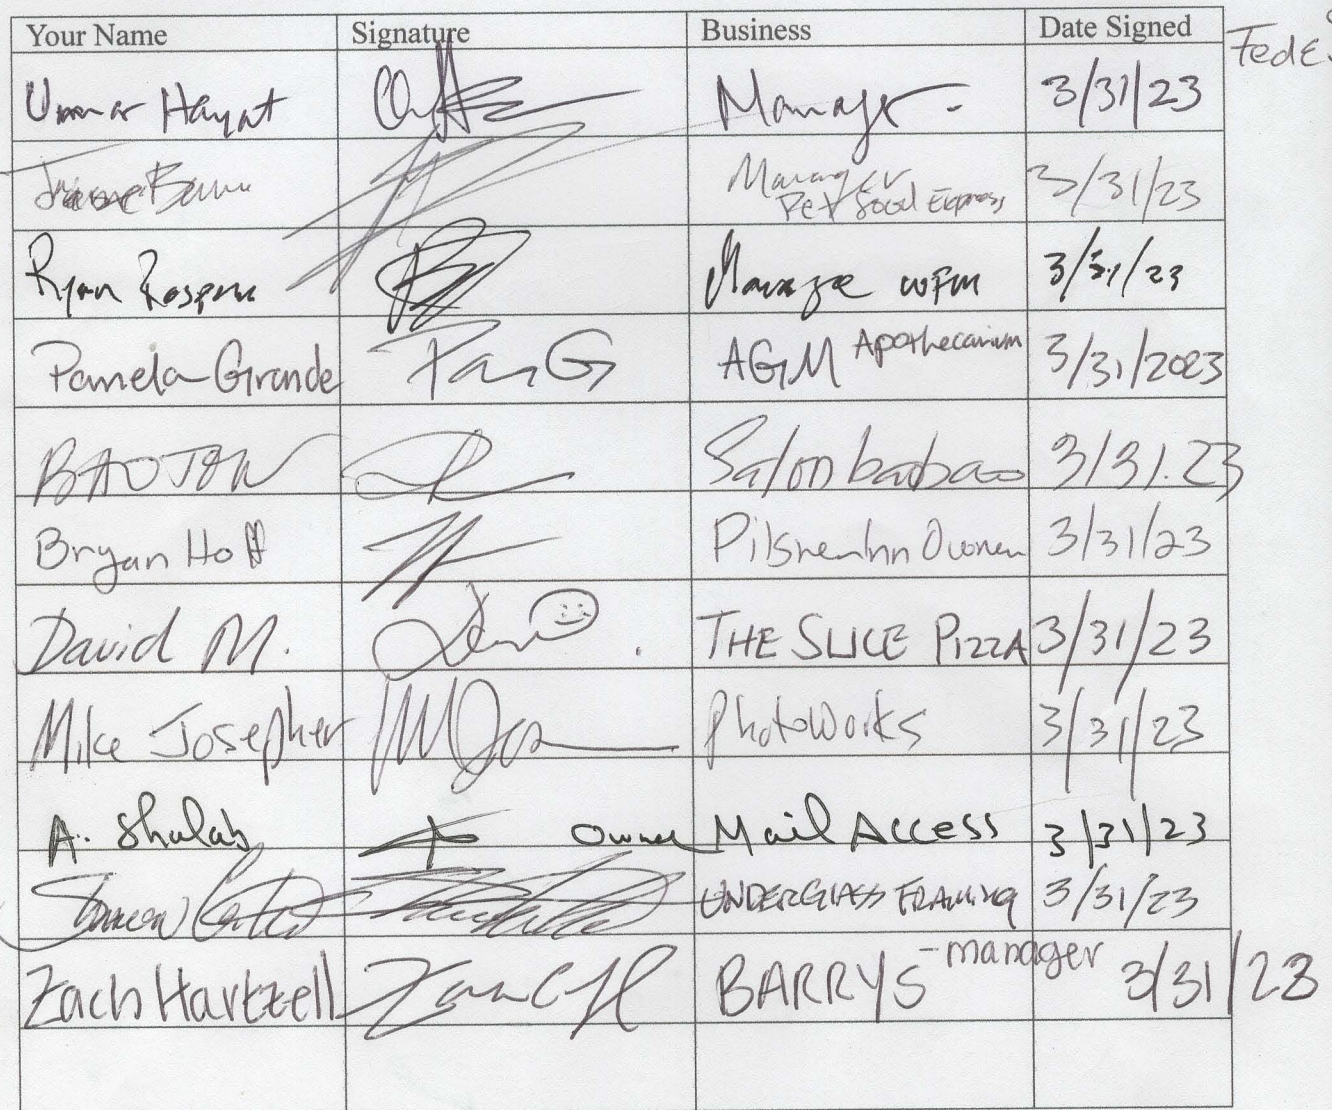 Your Name Signature Business Date Signed
FedE
Ummar Hayat Manager 3/31/23
Manager
Pet Food Express 3/31/23
Ryan Manager WFM 3/31/23
Pamela Grande Pam G AGM Apothecarium 3/31/2023
BAO TRAN Salon baobao 3/31.23
Bryan Hoff Pilsner Inn Owner 3/31/23
David M. THE SLICE PIZZA 3/31/23
Mike Josepher PhotoWorks 3/31/23
A. Shalab owner Mail Access 3/31/23
UNDERGLASS FRAMING 3/31/23
Zach Hartzell BARRYS - manager 3/31/23